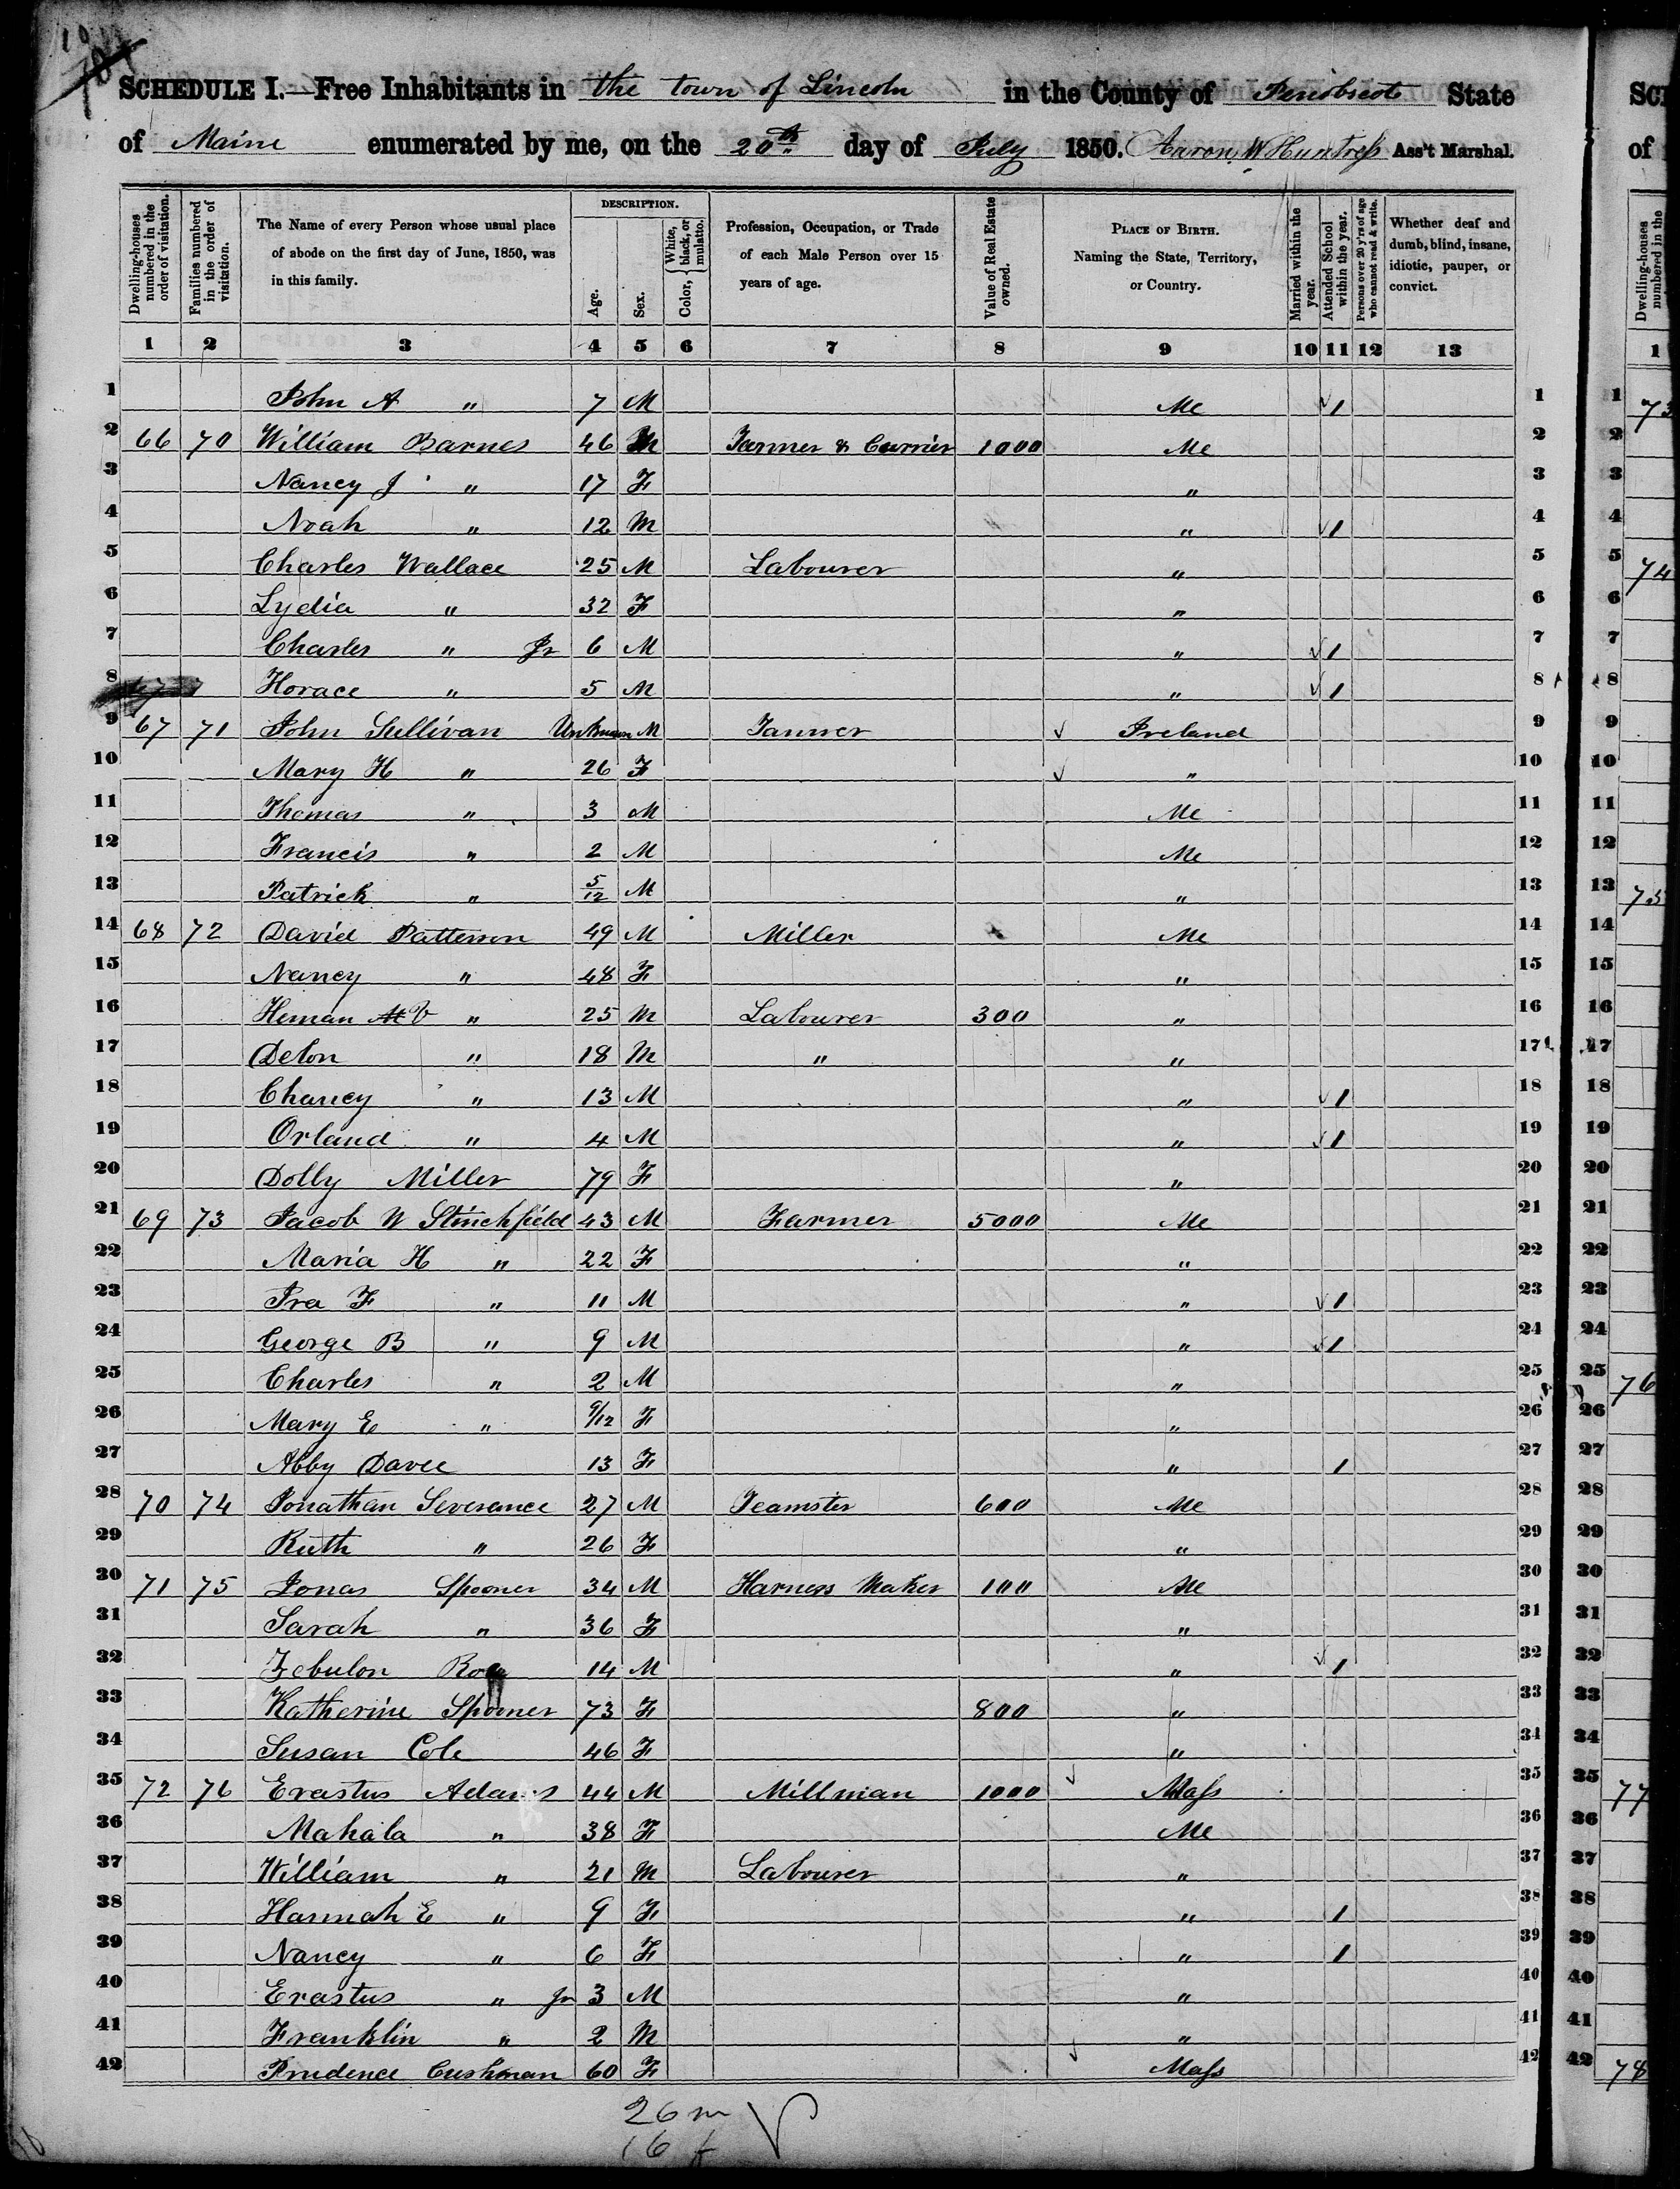 SCHEDULE I.—Free Inhabitants in the town of Lincoln in the County of Penobscot State
of Maine enumerated by me, on the 20th day of July 1850. Aaron W Huntress Ass't Marshal.
Dwelling-houses numbered in the order of visitation.
Families numbered in the order of visitation.
The Name of every Person whose usual place of abode on the first day of June, 1850, was in this family.
DESCRIPTION.
Age.
Sex.
Color, { White, black, or mulatto.
Profession, Occupation, or Trade of each Male Person over 15 years of age.
Value of Real Estate owned.
PLACE OF BIRTH. Naming the State, Territory, or Country.
Married within the year.
Attended School within the year.
Persons over 20 y'rs of age who cannot read & write.
Whether deaf and dumb, blind, insane, idiotic, pauper, or convict.
1 2 3 4 5 6 7 8 9 10 11 12 13
1 John A " 7 M Me ✓ 1 1
2 66 70 William Barnes 46 M Farmer & Currier 1000 Me 2
3 Nancy J " 17 F " 3
4 Noah " 12 M " ✓ 1 4
5 Charles Wallace 25 M Labourer " 5
6 Lydia " 32 F " 6
7 Charles " Jr 6 M " ✓ 1 7
8 Horace " 5 M " ✓ 1 8
9 67 71 John Sullivan Unknown M Tanner ✓ Ireland 9
10 Mary H " 26 F ✓ " 10
11 Thomas " 3 M Me 11
12 Francis " 2 M Me 12
13 Patrick " 5/12 M " 13
14 68 72 David Patterson 49 M Miller Me 14
15 Nancy " 48 F " 15
16 Heman V " 25 M Labourer 300 " 16
17 Delon " 18 M " " 17
18 Chancy " 13 M " ✓ 1 18
19 Orland " 4 M " ✓ 1 19
20 Dolly Miller 79 F " 20
21 69 73 Jacob W Stinchfield 43 M Farmer 5000 Me 21
22 Maria H " 22 F " 22
23 Ira F " 11 M " ✓ 1 23
24 George B " 9 M " ✓ 1 24
25 Charles " 2 M " 25
26 Mary E " 9/12 F " 26
27 Abby Davee 13 F " 1 27
28 70 74 Jonathan Severance 27 M Teamster 600 Me 28
29 Ruth " 26 F " 29
30 71 75 Jonas Spooner 34 M Harness Maker 100 Me 30
31 Sarah " 36 F " 31
32 Zebulon 14 M " ✓ 1 32
33 Katherine Spooner 73 F 800 " 33
34 Susan Cole 46 F " 34
35 72 76 Erastus Adams 44 M Millman 1000 ✓ Mass 35
36 Mahala " 38 F Me 36
37 William " 21 M Labourer " 37
38 Hannah E " 9 F " 1 38
39 Nancy " 6 F " 1 39
40 Erastus " Jr 3 M " 40
41 Franklin " 2 M " 41
42 Prudence Cushman 60 F ✓ Mass 42
26 m
16 f